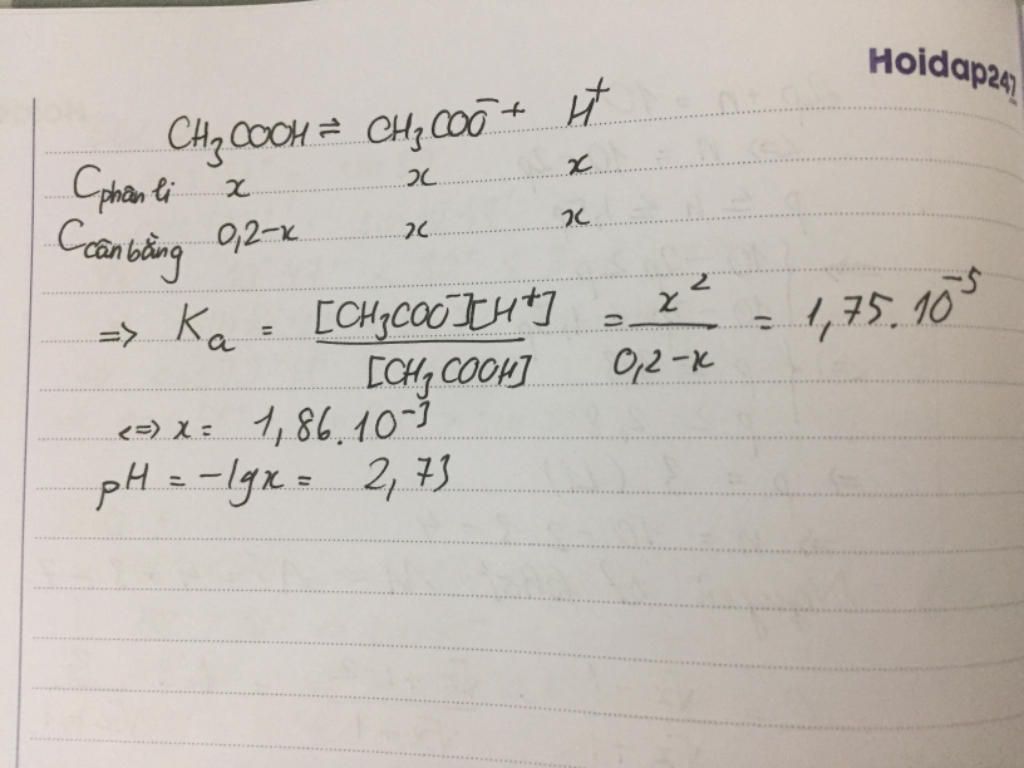 Hoidap247
CH₃COOH ⇌ CH₃COO⁻ + H⁺
Cphân li x x x
Ccân bằng 0,2-x x x
=> Ka = [CH₃COO⁻][H⁺] / [CH₃COOH] = x² / 0,2-x = 1,75.10⁻⁵
<=> x = 1,86.10⁻³
pH = -lgx = 2,73